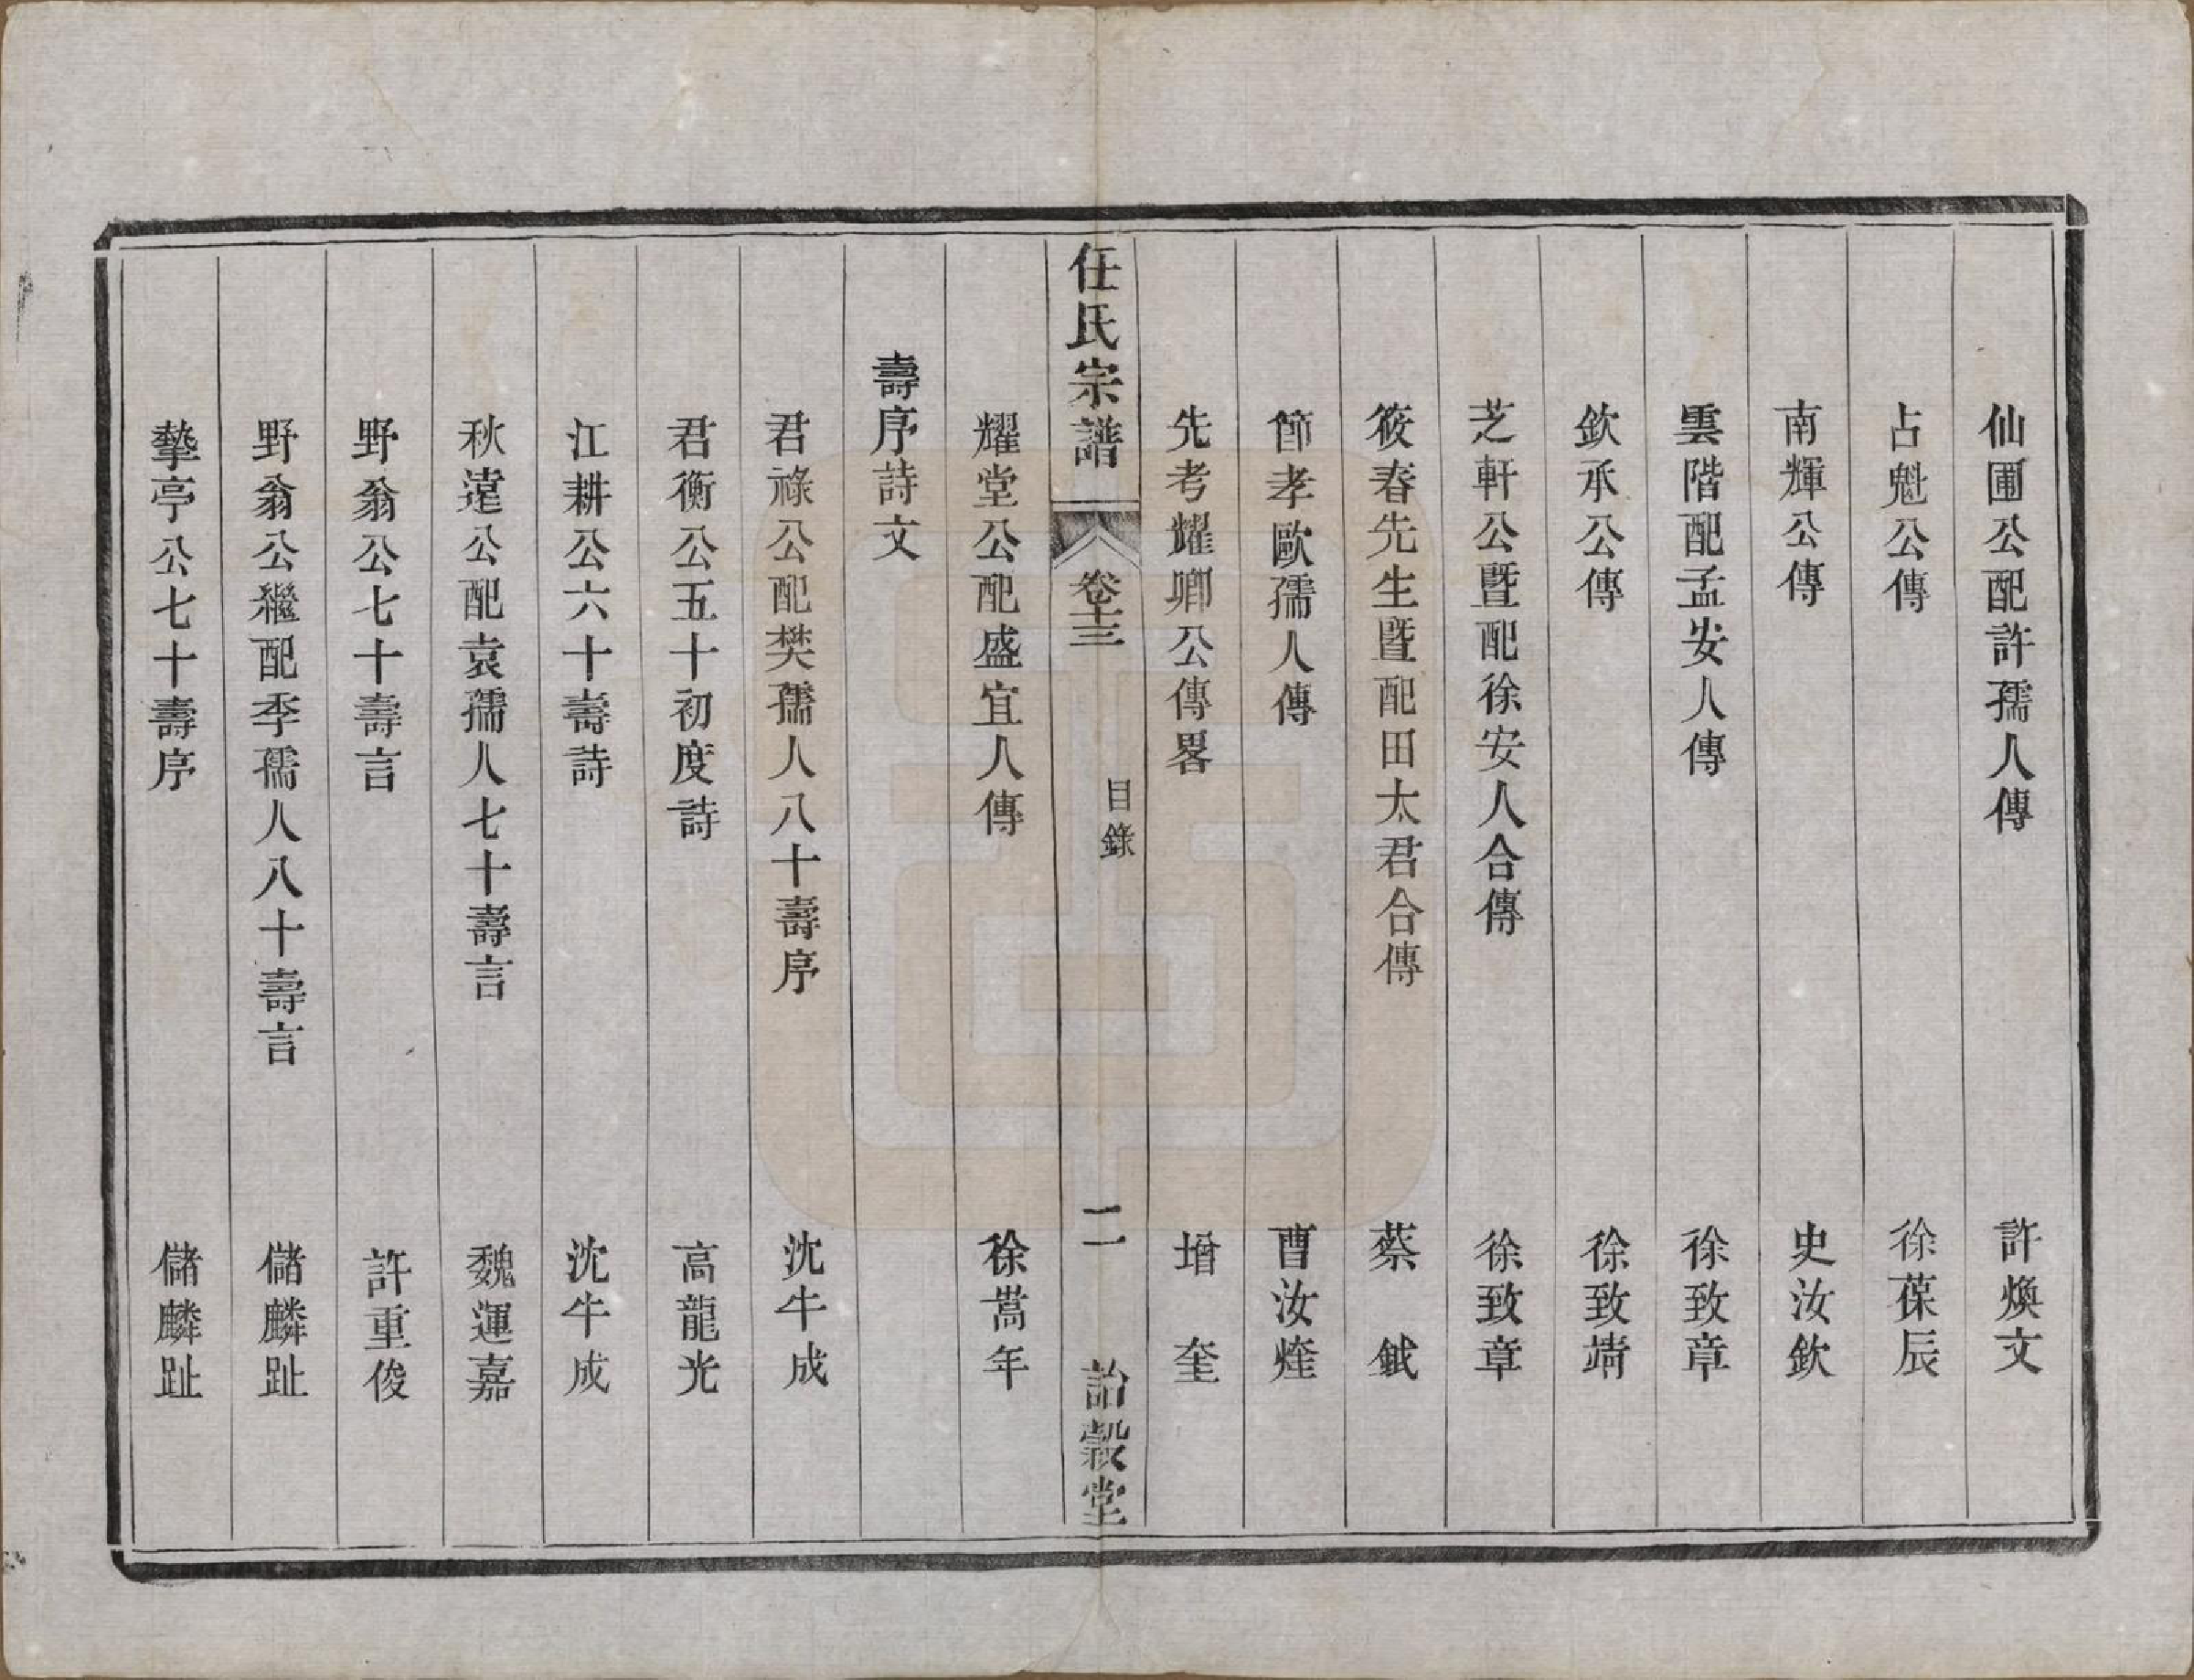 仙圃公配許孺人傳　許煥文
占魁公傳　徐葆辰
南輝公傳　史汝欽
雲階配孟安人傳　徐致章
欽承公傳　徐致靖
芝軒公暨配徐安人合傳　徐致章
筱春先生暨配田太君合傳　蔡鉞
節孝歐孺人傳　曹汝煃
先考耀卿公傳畧　增奎
任氏宗譜　卷十三　目錄　二　詒穀堂
耀堂公配盛宜人傳　徐嵩年
壽序詩文
君祿公配樊孺人八十壽序　沈牛成
君衡公五十初度詩　高龍光
江耕公六十壽詩　沈牛成
秋遠公配袁孺人七十壽言　魏運嘉
野翁公七十壽言　許重俊
野翁公繼配季孺人八十壽言　儲麟趾
摯亭公七十壽序　儲麟趾